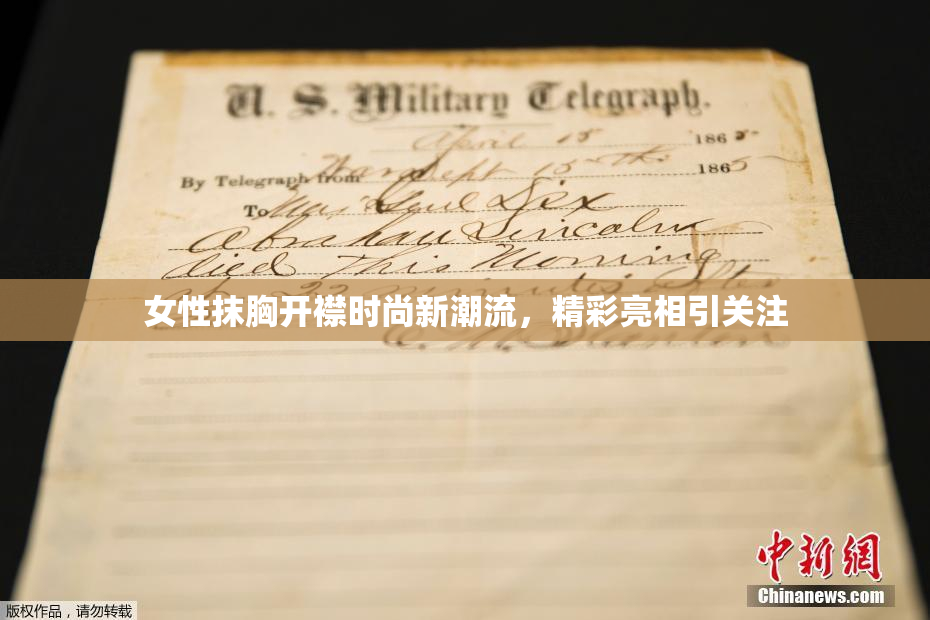 U. S. Military Telegraph.
April 15 1865.
By Telegraph from War Dept 15th 1865
To Maj Genl Dix
Abraham Lincoln
died This Morning
at 22 minutes after
女性抹胸开襟时尚新潮流，精彩亮相引关注
E. M. Stanton
中新網
Chinanews.com
版权作品，请勿转载